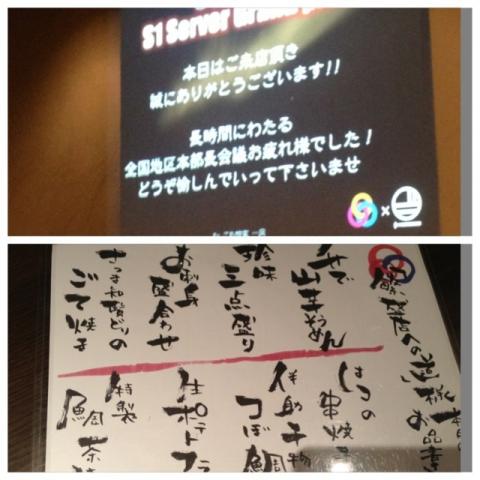 S1 Server Grand
本日はご来店頂き
誠にありがとうございます!!
長時間にわたる
全国地区本部長会議お疲れ様でした!
どうぞ愉しんでいって下さいませ
×
繁盛店への道様
お品書
山芋そうめん
珍味
三点盛り
お刺身
盛合わせ
さつま知覧どりの
ごて焼き
はつの
串焼き
伴助干物
つぼ鯛
生ポテトフラ
特製
鯛茶